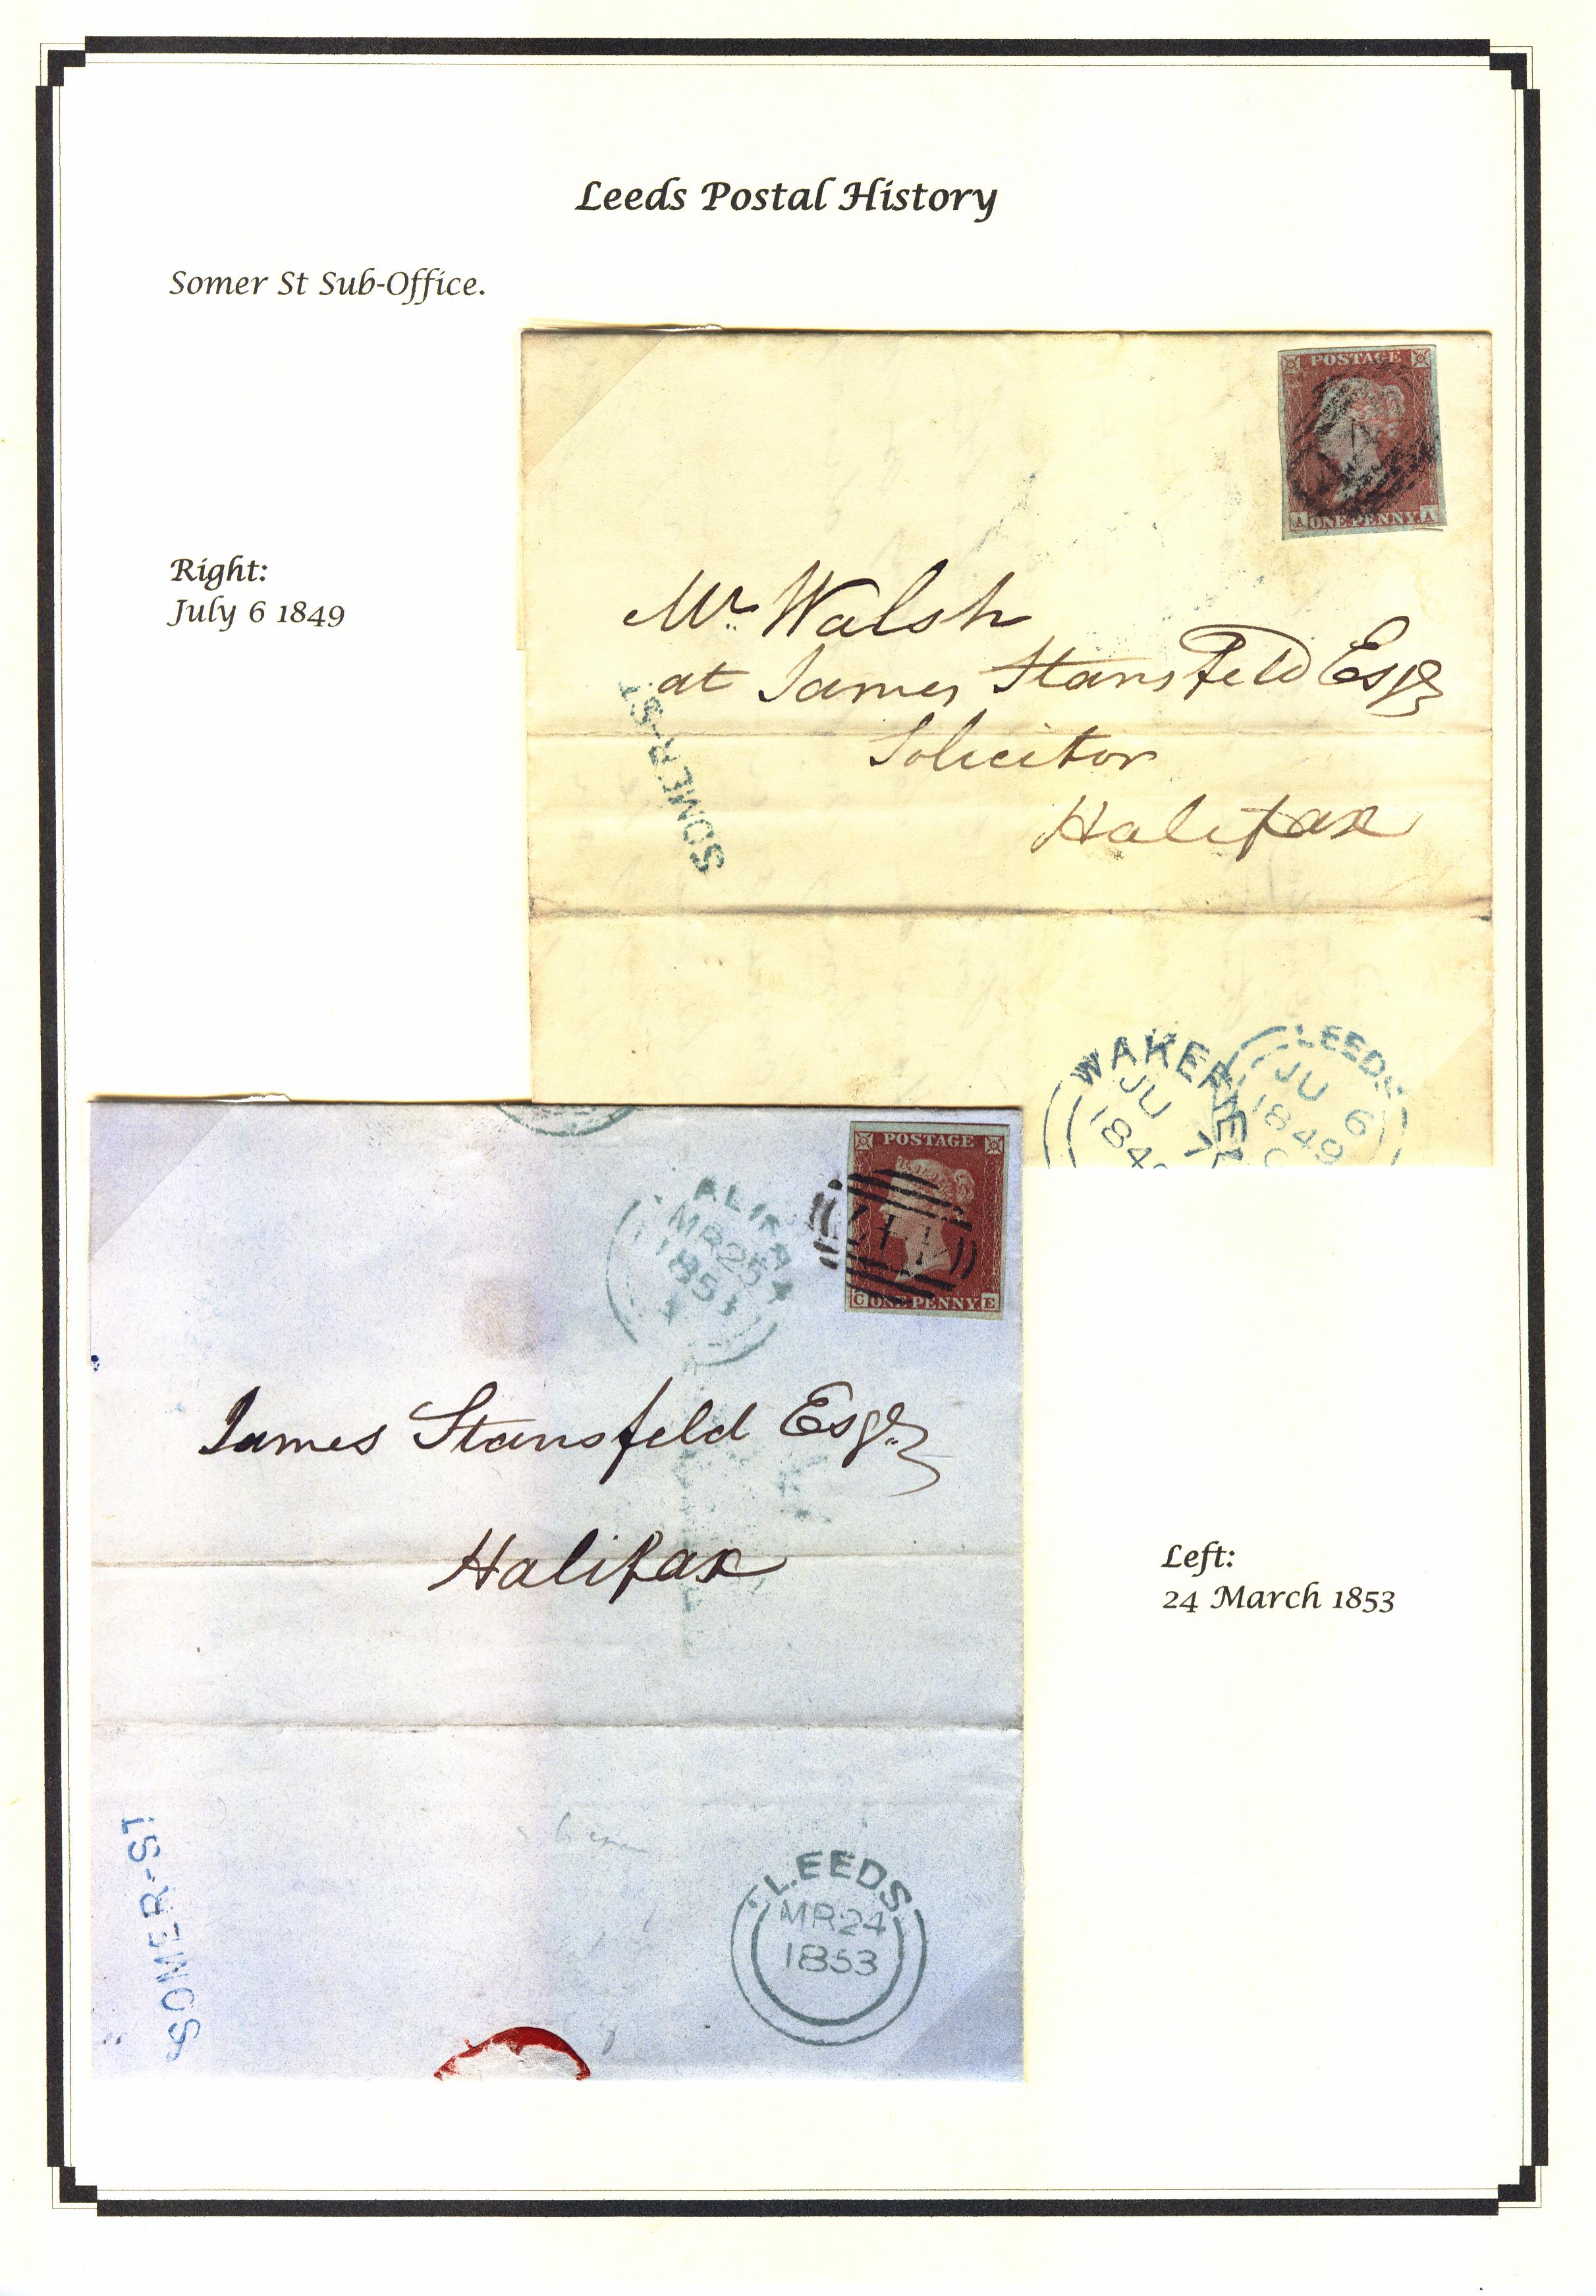 Leeds Postal History
Somer St Sub-Office.
POSTAGE
A ONE PENNY A
Right:
July 6 1849
Mr. Walsh
at James Stansfeld Esqr
Solicitor
Halifax
SOMER-ST
WAKEFIELD
JU 7
184
LEEDS
JU 6
1849
POSTAGE
C ONE PENNY E
ALIFAX
MR 25
1853
James Stansfeld Esqr.
Halifax
Left:
24 March 1853
SOMER-ST
LEEDS
MR 24
1853